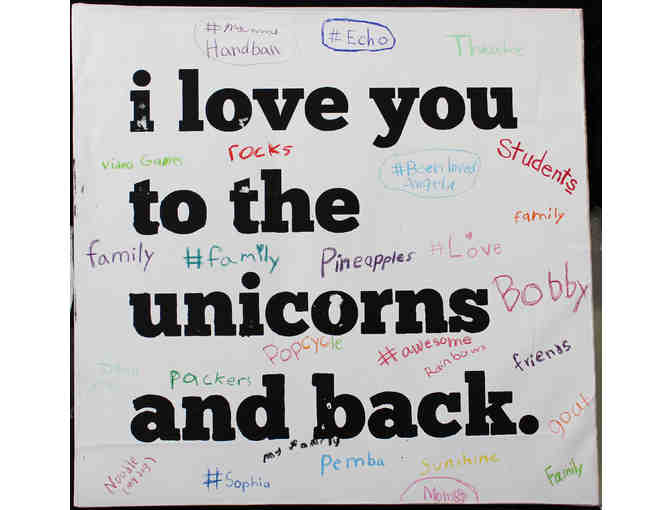 Handball
#Echo
Theatre
i love you
Video Games
rocks
#Been loved
Angela
Students
to the
family
family
#family
Pineapples
#Love
Bobby
unicorns
PopCycle
#awesome
Rainbows
friends
packers
and back.
goat
my family
Noodle
(my dog)
#Sophia
Pemba
Sunshine
Family